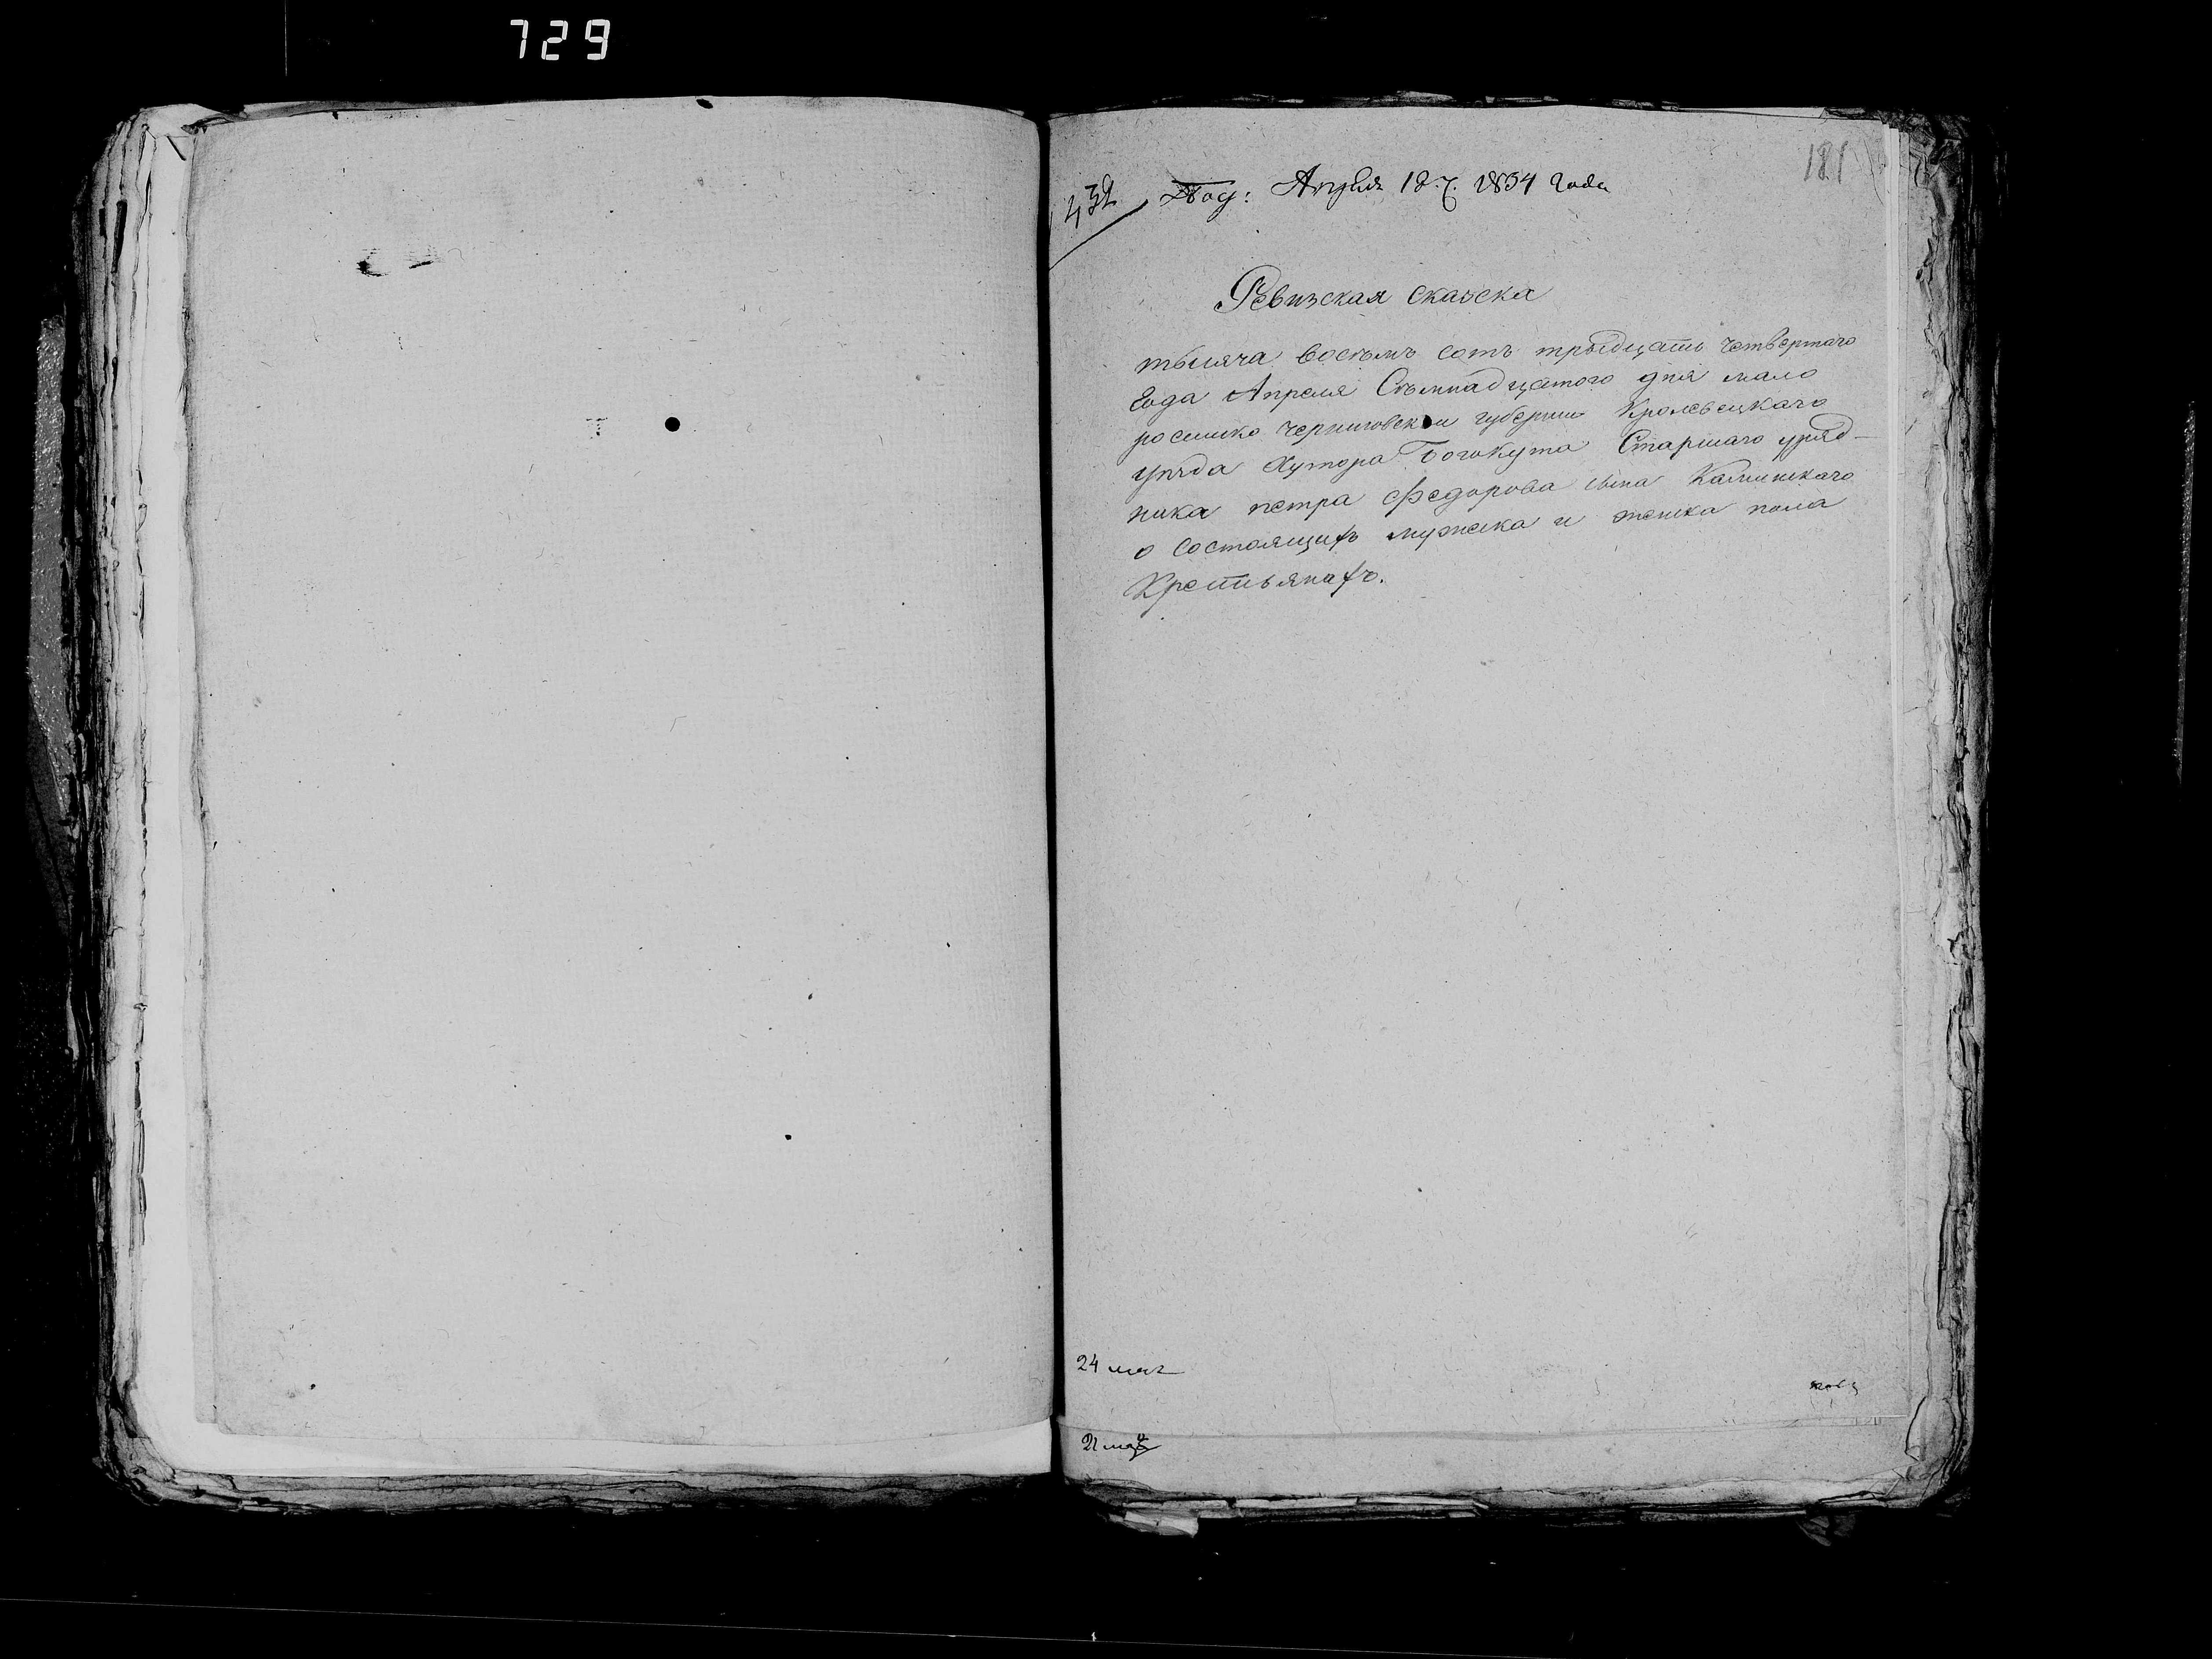 729
181
432
Под: Апреля 18 1834 года
Ревизская сказска
тысяча восѣмъ сотъ трыдцать четвертаго
года Апреля Сѣмнадцатого дня мало
росииско черниговской губернии Кролевецкаго
уезда Хутора Богокута Старшаго уряд-
ника петра Федорова сына Калинскаго
о состоящихъ мужска и женска пола
Крестьянахъ.
24 мая
21 май